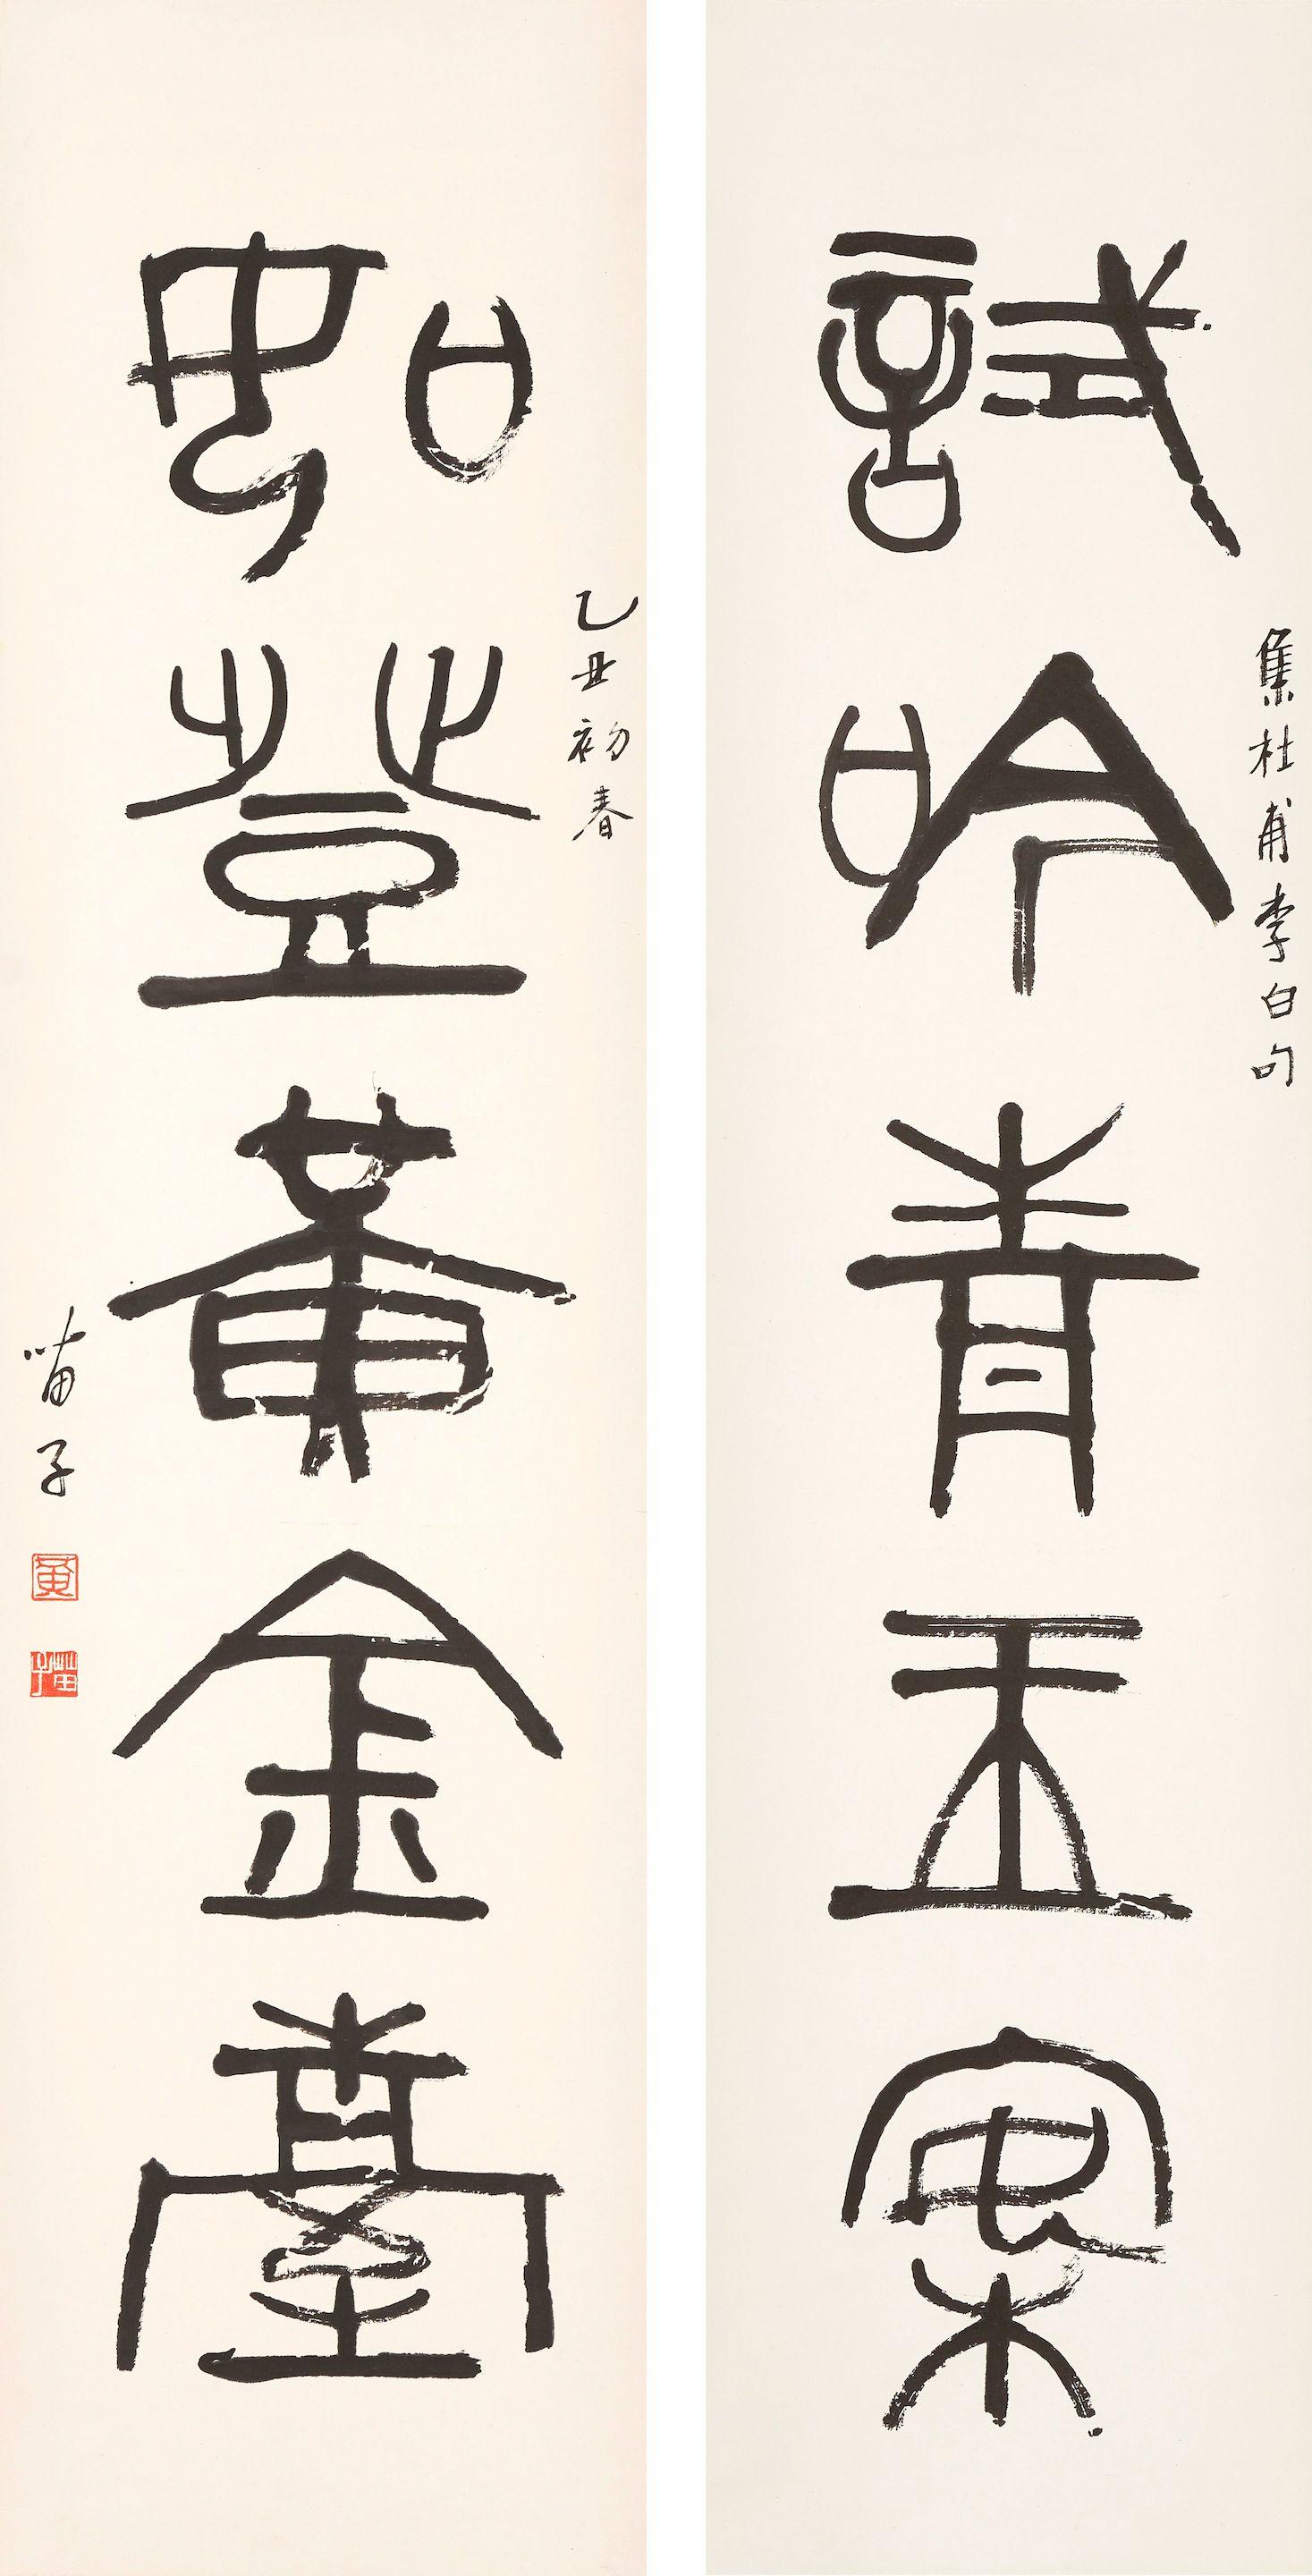 集杜甫李白句
試吟青玉案
乙丑初春
如登黃金臺
苗子
黃
苗子